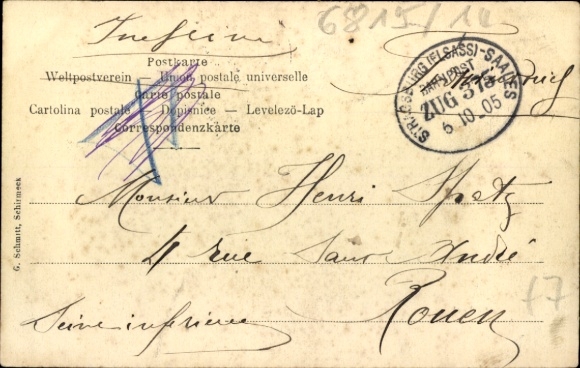 6815/14
Postkarte
Weltpostverein — Union postale universelle
Carte postale
Cartolina postale — Dopisnice — Levelező-Lap
Correspondenzkarte
STRASSBURG (ELSASS)-SAALES
BAHNPOST
ZUG 373
5 10 05
Monsieur Henri Spetz
4 rue Saint André
Rouen
Seine inférieure
G. Schmitt, Schirmeck
f7